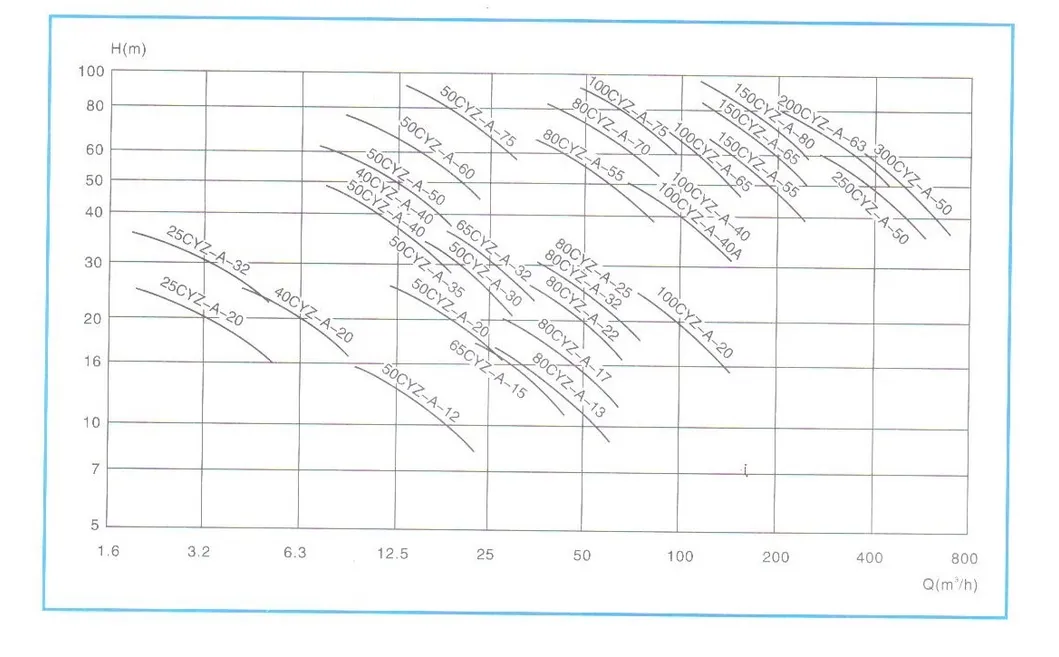 H(m)
100
80
60
50
40
30
20
16
10
7
5
50CYZ-A-75
50CYZ-A-60
50CYZ-A-50
40CYZ-A-40
50CYZ-A-40
25CYZ-A-32
25CYZ-A-20
40CYZ-A-20
50CYZ-A-35
50CYZ-A-20
65CYZ-A-32
50CYZ-A-30
65CYZ-A-15
50CYZ-A-12
100CYZ-A-75
80CYZ-A-70
80CYZ-A-55
100CYZ-A-65
100CYZ-A-40
100CYZ-A-40A
80CYZ-A-25
80CYZ-A-32
80CYZ-A-22
80CYZ-A-17
80CYZ-A-13
100CYZ-A-20
150CYZ-A-80
150CYZ-A-65
150CYZ-A-55
200CYZ-A-63
300CYZ-A-50
250CYZ-A-50
1.6 3.2 6.3 12.5 25 50 100 200 400 800
Q(m³/h)